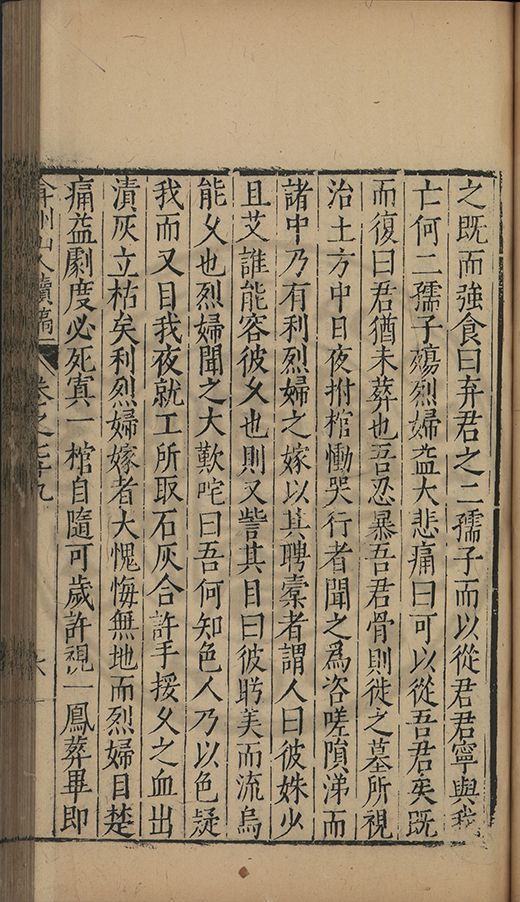 之既而強食曰弃君之二孺子而以從君君寧與我
亡何二孺子殤烈婦益大悲痛曰可以從吾君矣既
而復曰君猶未葬也吾忍暴吾君骨則徙之墓所視
治土方中日夜拊棺慟哭行者聞之為咨嗟隕涕而
諸中乃有利烈婦之嫁以其聘橐者謂人曰彼姝少
且艾誰能容彼久也則又訾其目曰彼眄美而流烏
能久也烈婦聞之大歎咤曰吾何知色人乃以色疑
我而又目我夜就工所取石灰合許手挼久之血出
漬灰立枯矣利烈婦嫁者大愧悔無地而烈婦目楚
痛益劇度必死寘一棺自隨可歲許視一鳳葬畢即
弇州山人續稿 卷之七十九 六